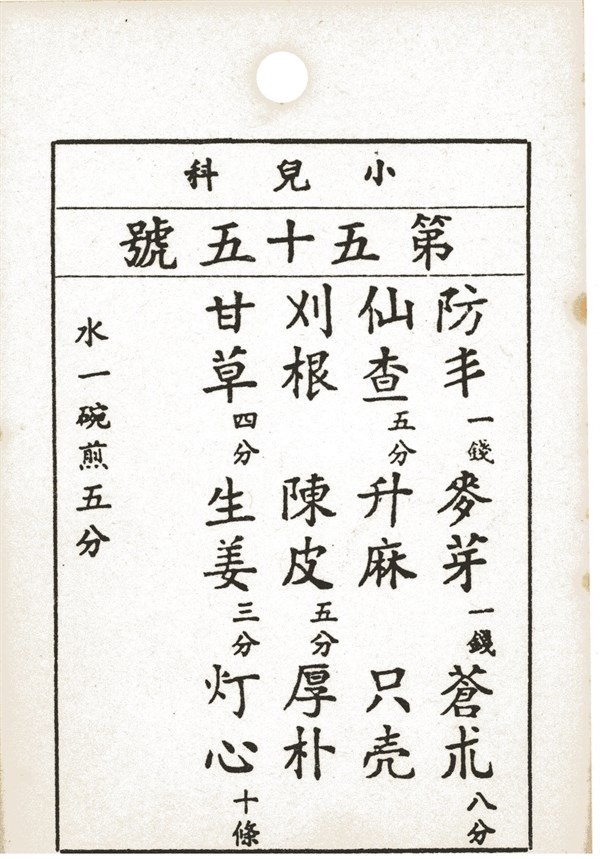 小兒科
第五十五號
防丰一錢麥芽一錢蒼朮八分
仙查五分升麻只壳
刈根陳皮五分厚朴
甘草四分生姜三分灯心十條
水一碗煎五分